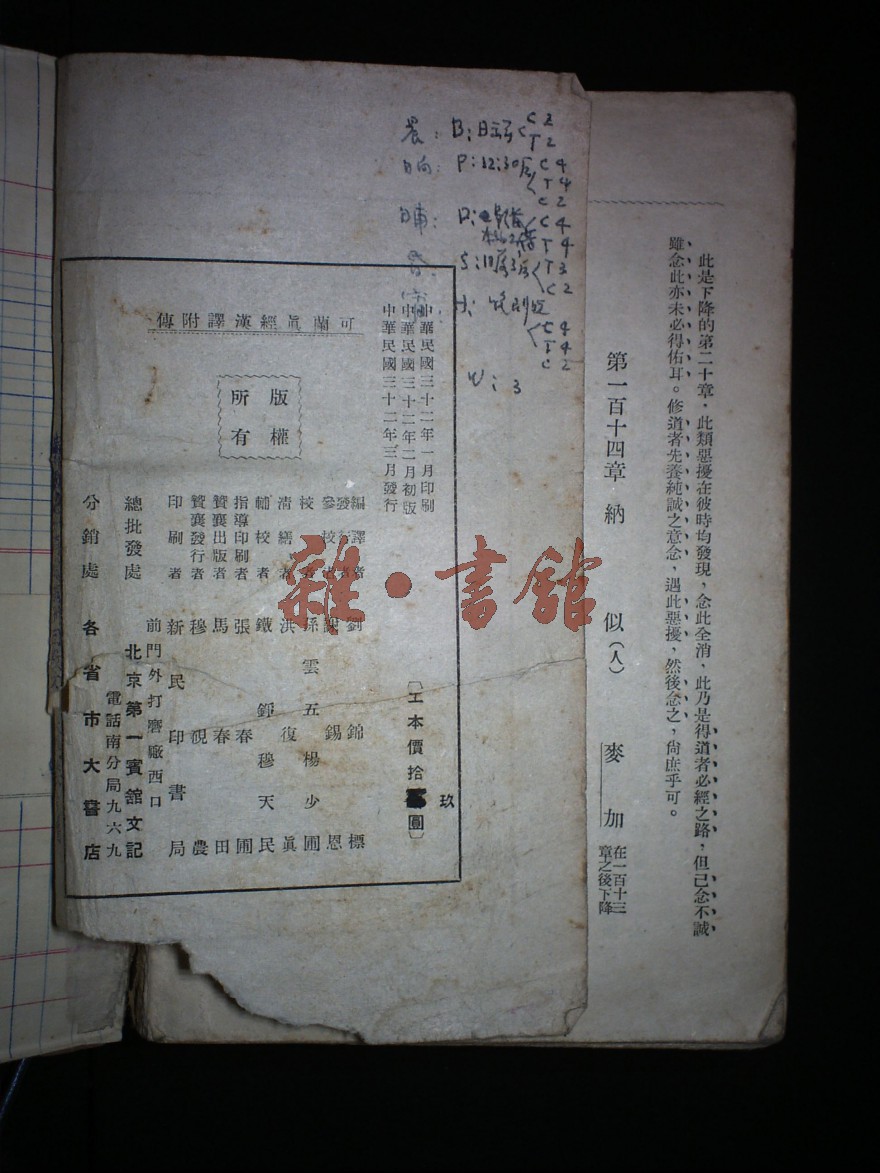 此是下降的第二十章，此類惡擾在彼時均發現，念此全消，此乃是得道者必經之路，但己念不誠
雖念此亦未必得佑耳。修道者先養純誠之意念，遇此惡擾，然後念之，尚庶乎可。
第一百十四章 納 似（人） 麥 加 在一百十三章之後下降
晨：B：
晌：P：12:30后
C 4
T 4
C 2
晡：D：
C 4
T 4
S：
T 3
C 2
H：
C 4
T 4
C 2
W：3
玖
中華民國三十二年一月印刷
中華民國三十二年二月初版
中華民國三十二年三月發行
〔工本價拾圓〕
可蘭眞經漢譯附傳
版權所有
編譯者 劉錦標
發行者
參校者 錫恩
校者 孫雲五 楊少圃
清繕者 洪復眞
輔校者 鐵錚 穆天民
指導印刷者 張春圃
贊襄出版者 馬春田
贊襄發行者 穆硯農
印刷者 新民印書局
前門外打磨廠西口
總批發處 北京第一賓館文記
電話南分局九六九
分銷處 各省市大書店
雜·書館